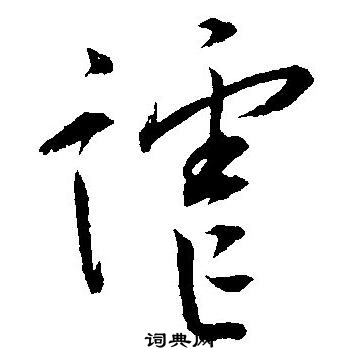 謔
词典网